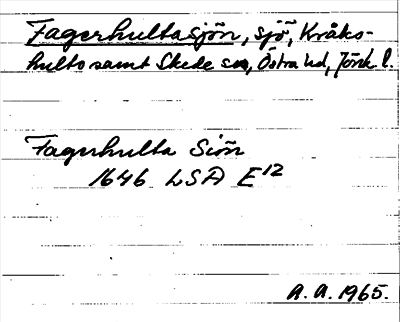 Fagerhultasjön, sjö, Kråks-
hults samt Skede sn, Östra hd, Jönk. l.
Fagerhulta Siön
1646 LSA E12
A. A. 1965.